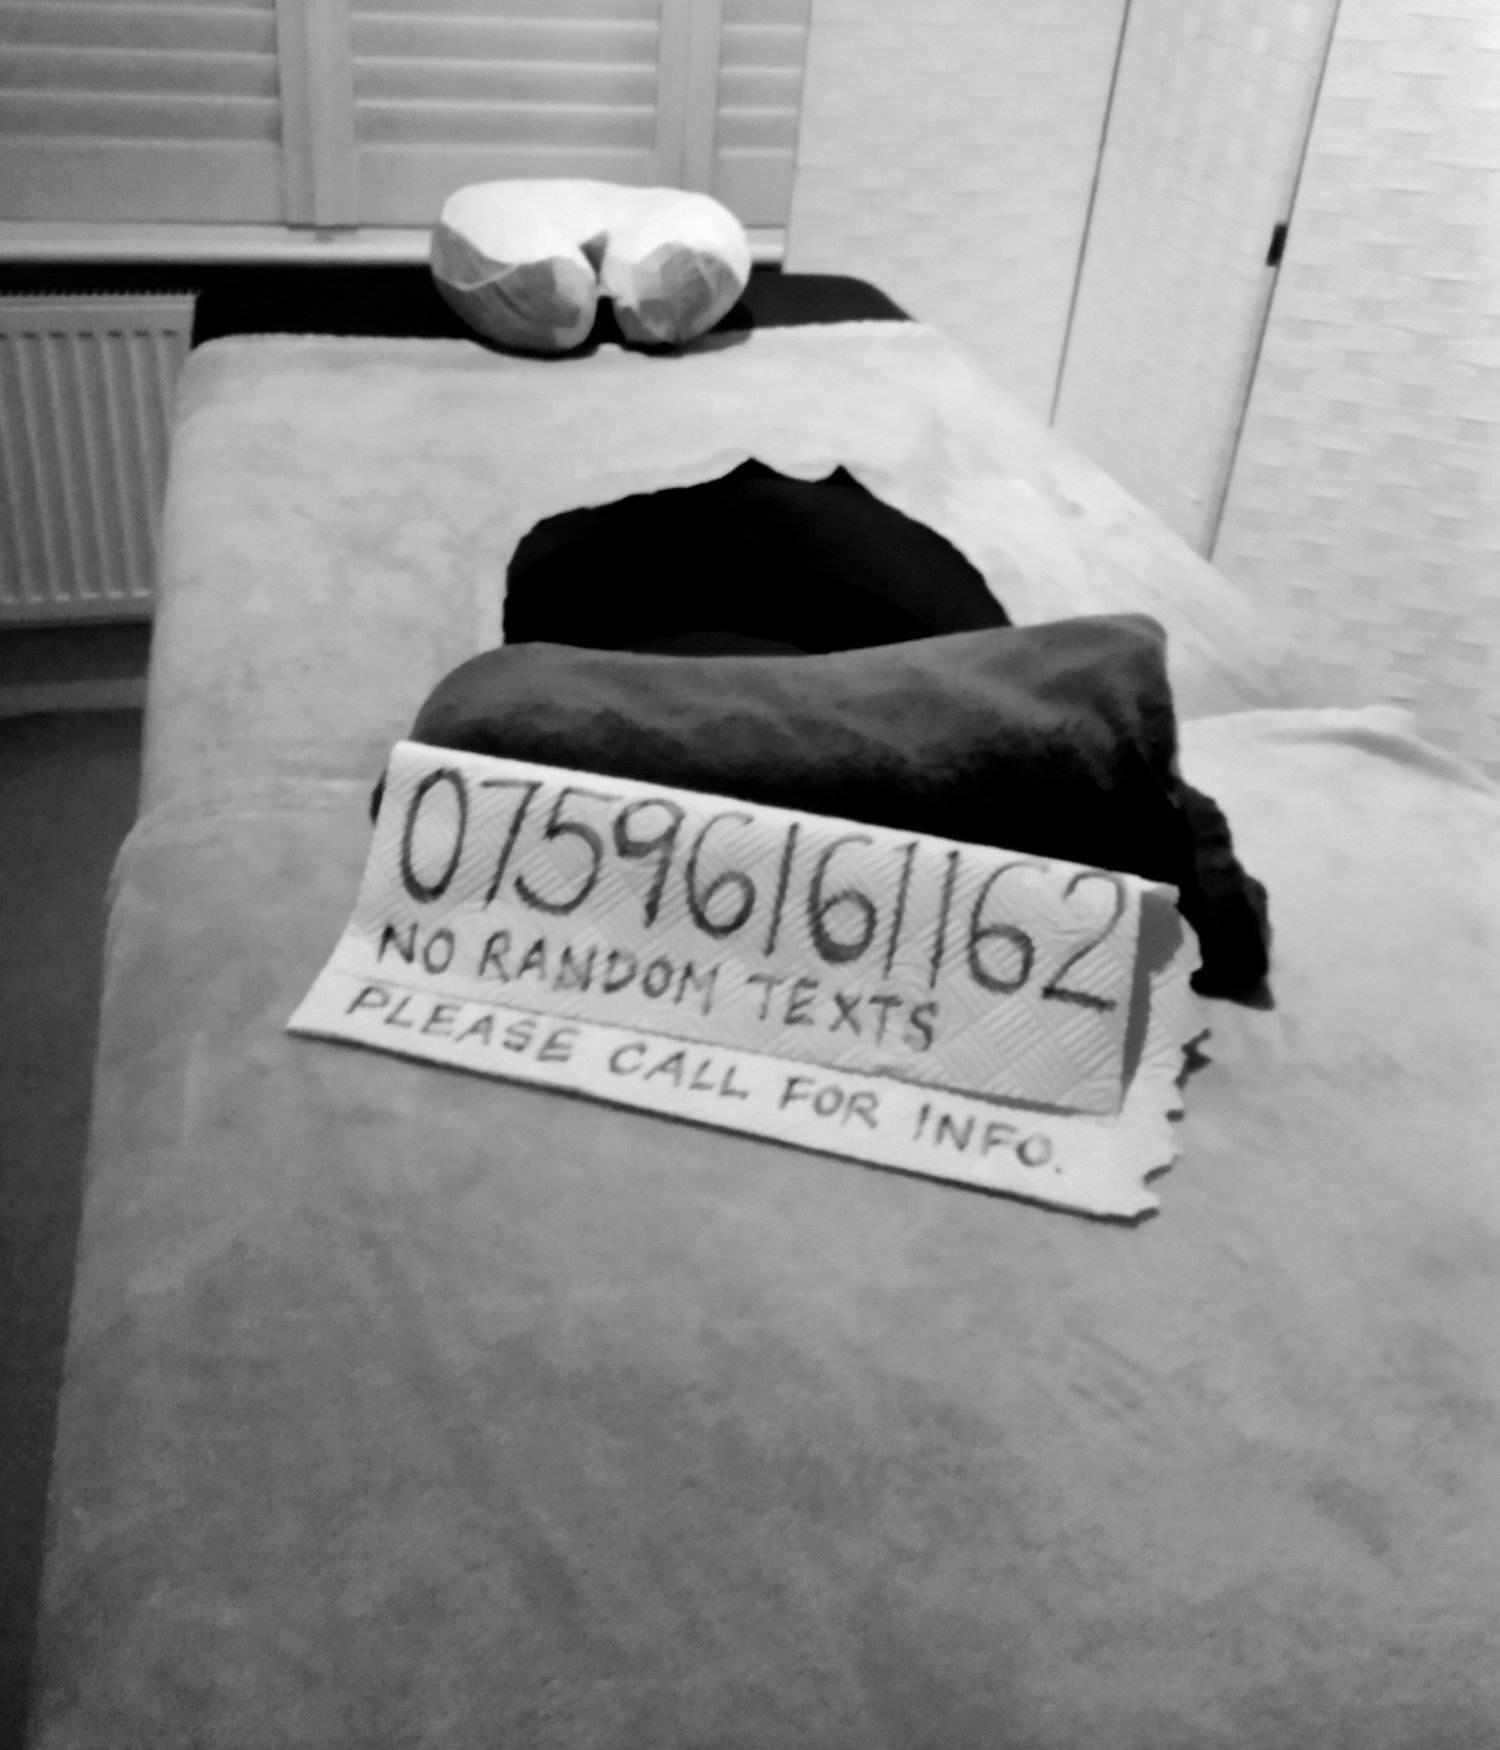 07596161162
NO RANDOM TEXTS
PLEASE CALL FOR INFO.